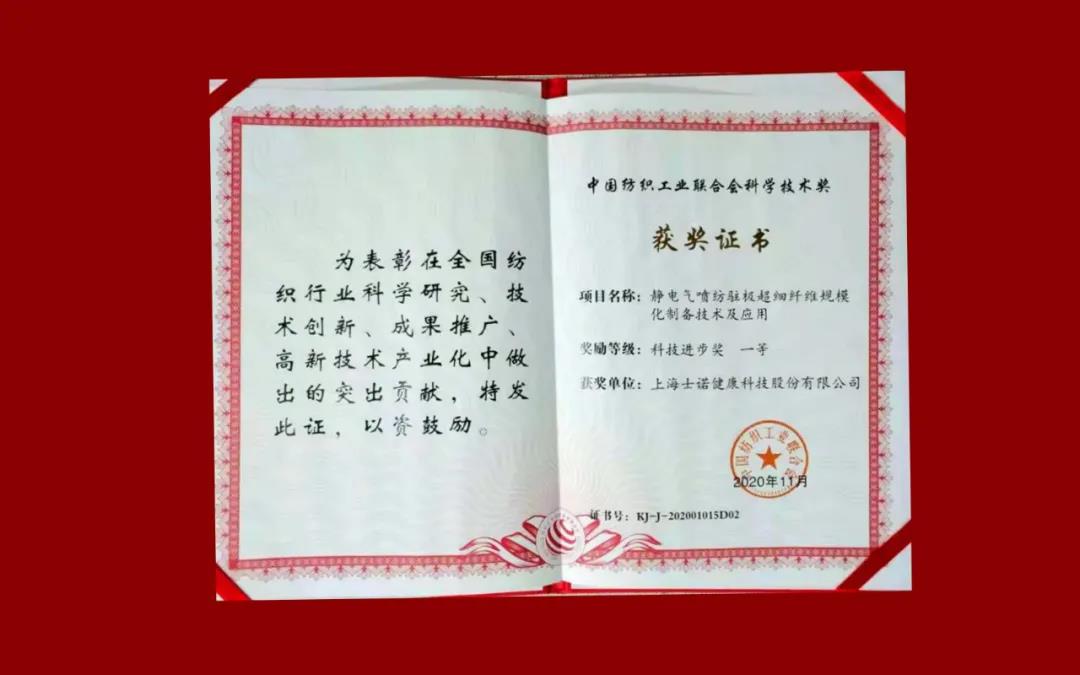 为表彰在全国纺
织行业科学研究、技
术创新、成果推广、
高新技术产业化中做
出的突出贡献，特发
此证，以资鼓励。
中国纺织工业联合会科学技术奖
获奖证书
项目名称：静电气喷纺驻极超细纤维规模
化制备技术及应用
奖励等级：科技进步奖 一等
获奖单位：上海士诺健康科技股份有限公司
中国纺织工业联合会
2020年11月
证书号：KJ-J-202001015D02